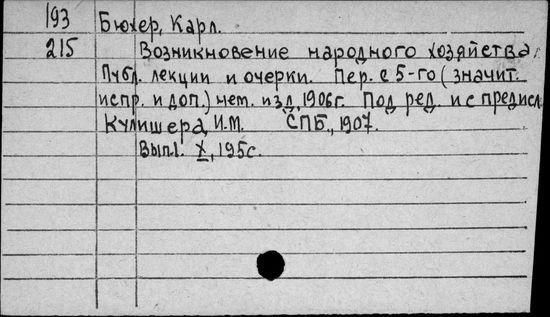 193 Бюхер, Карл.
215 Возникновение народного хозяйства.
Публ. лекции и очерки. Пер. с 5-го (значит.
испр. и доп.) нем. изд. 1906г. Под ред. и с предисл.
Кулишера, И.М. СПБ., 1907.
Вып.1. X, 195с.